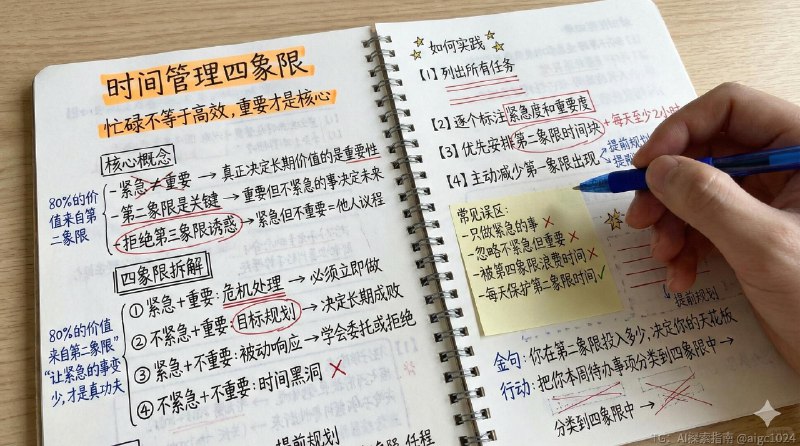 时间管理四象限
忙碌不等于高效,重要才是核心
核心概念
80%的价
值来自第
二象限
- 紧急≠重要 → 真正决定长期价值的是重要性
- 第二象限是关键 → 重要但不紧急的事决定未来
- 拒绝第三象限诱惑 → 紧急但不重要=他人议程
四象限拆解
80%的价值
来自第二象限”
“让紧急的事变
少,才是真功夫
① 紧急+重要: 危机处理 → 必须立即做
② 不紧急+重要: 目标规划 → 决定长期成败
③ 紧急+不重要: 被动响应 → 学会委托或拒绝
④ 不紧急+不重要: 时间黑洞 ×
提前规划
任程
如何实践
【1】列出所有任务
【2】逐个标注紧急度和重要度
【3】优先安排第二象限时间块 + 每天至少2小时
【4】主动减少第一象限出现
提前规划
常见误区:
- 只做紧急的事 ×
- 忽略不紧急但重要 ×
- 被第四象限浪费时间 ×
- 每天保护第二象限时间 ✓
提前规划
金句: 你在第二象限投入多少,决定你的天花板
行动: 把你本周待办事项分类到四象限中 →
分类到四象限中 →
TG: AI探索指南 @aigc1024